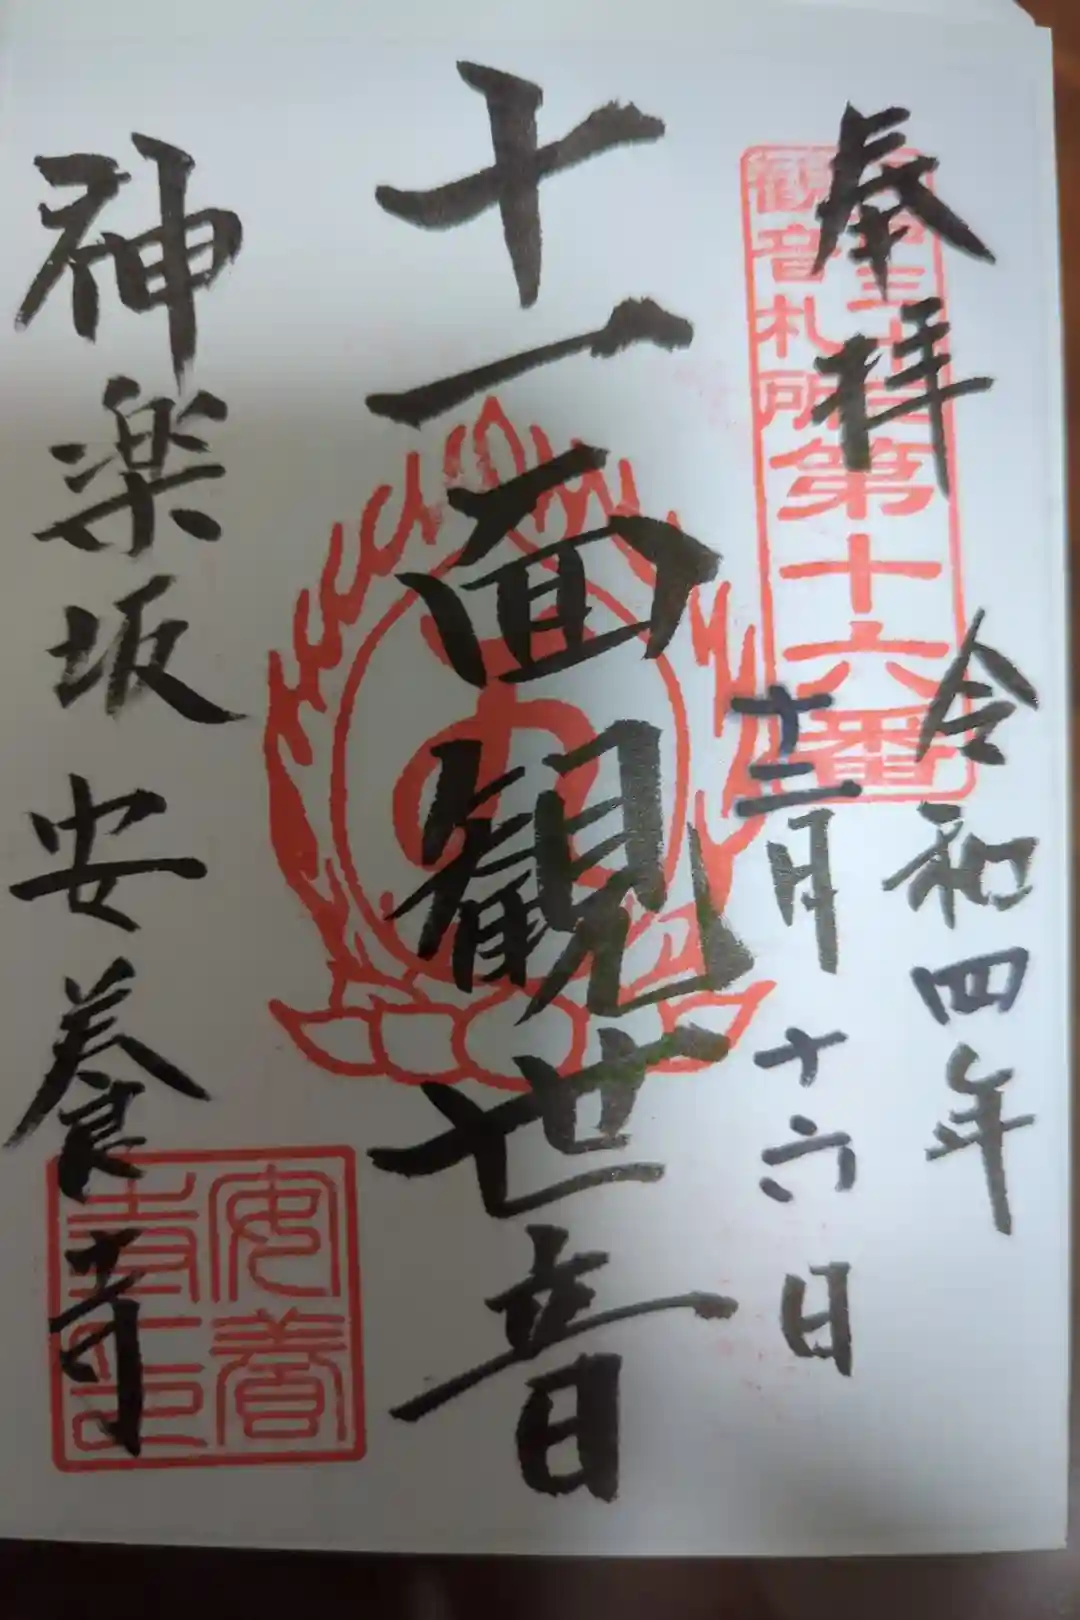 奉拝
昭和三十三
観音札所第十六番
令和四年
十二月十六日
十一面観世音
神楽坂 安養寺
安養
寺印